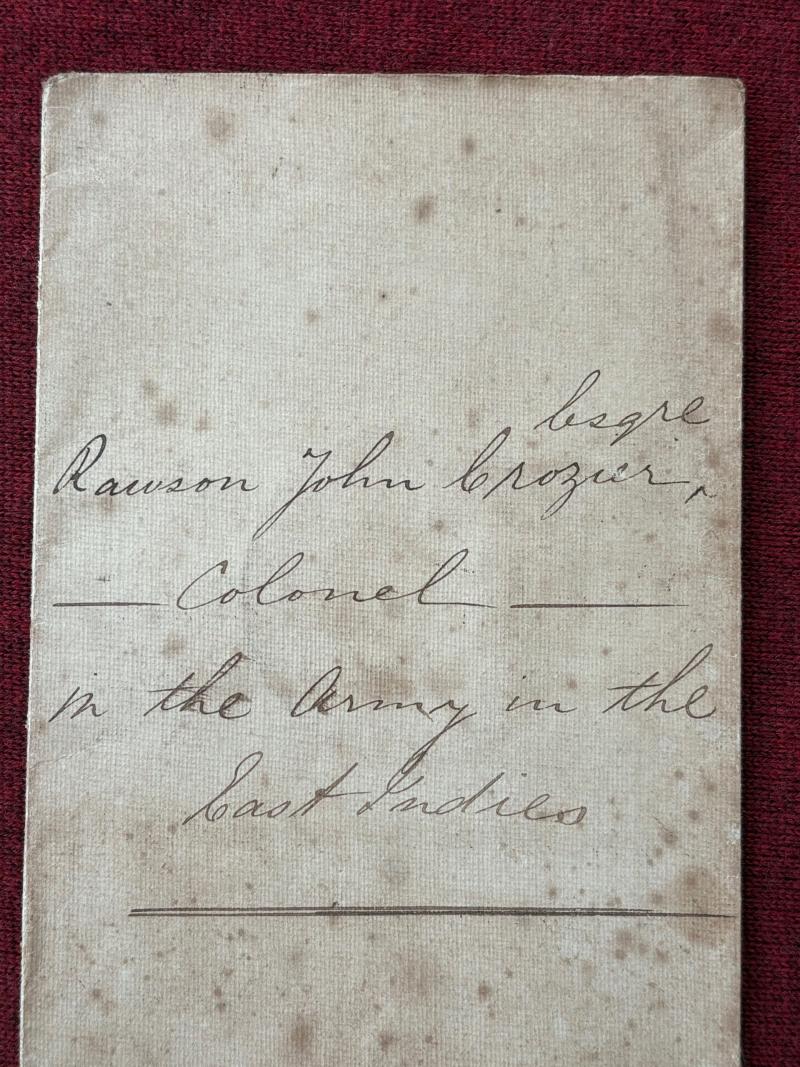 Esqre
Rawson John Crozier,
Colonel
in the Army in the
East Indies